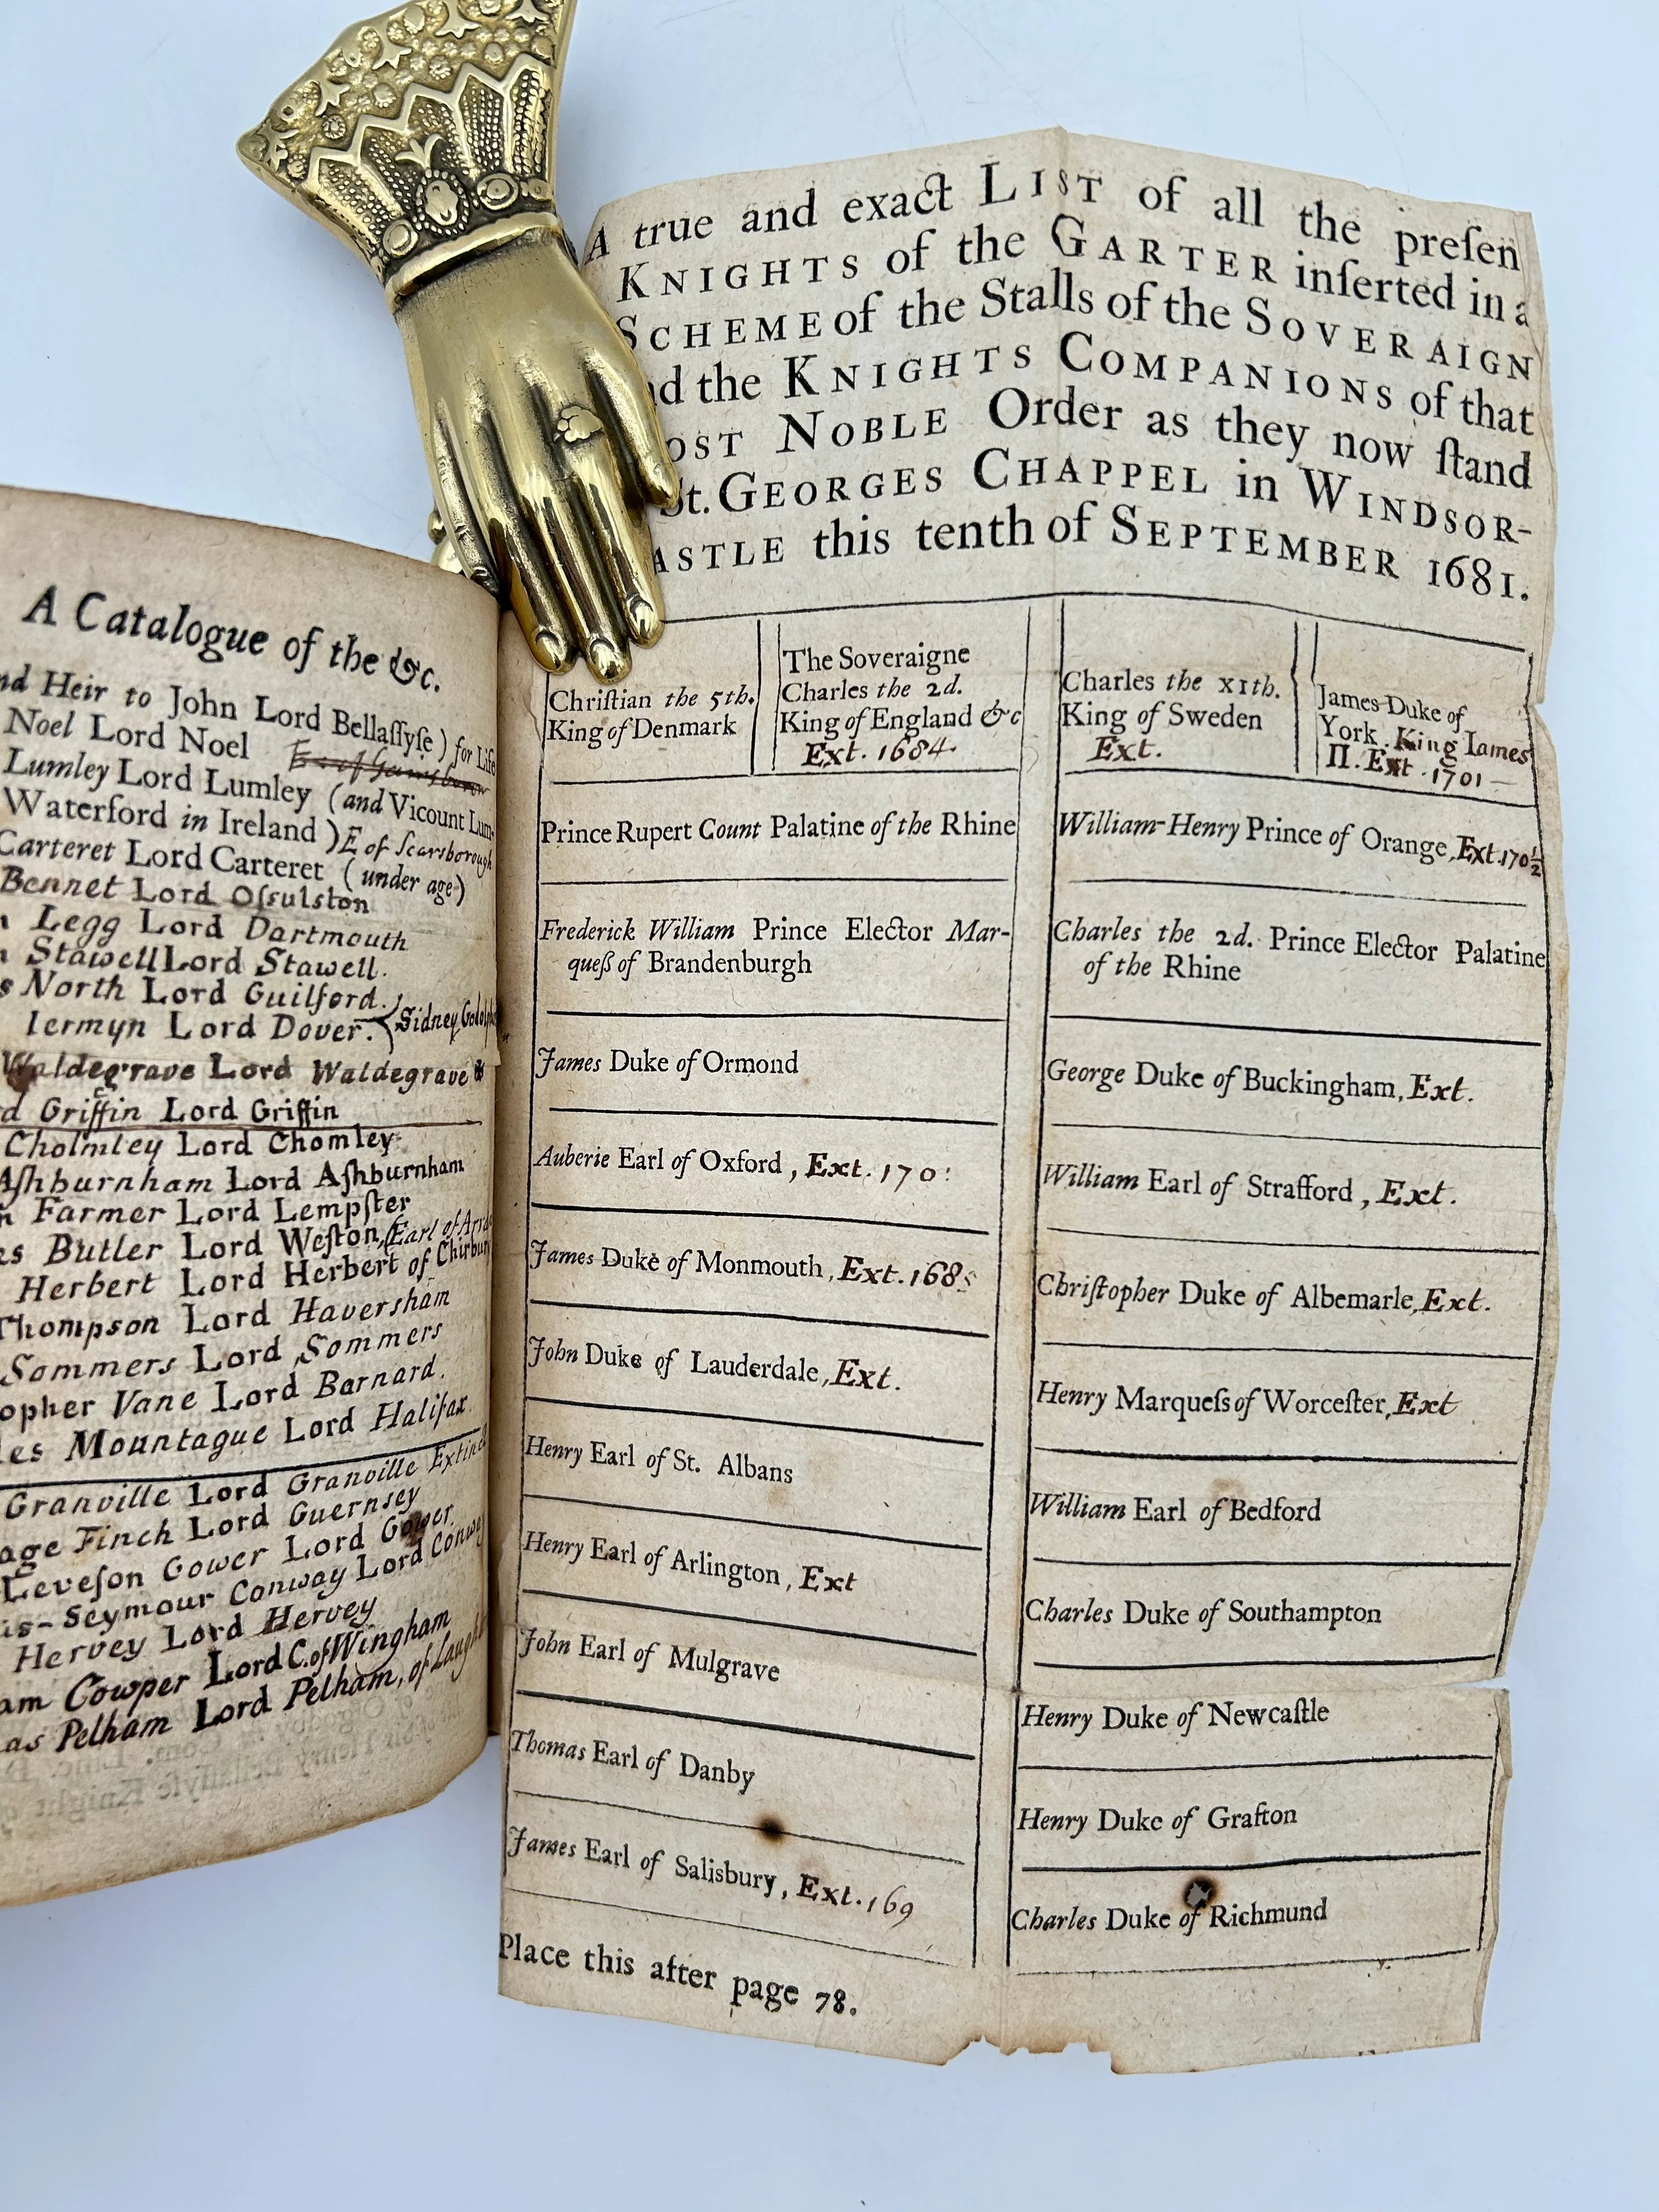 A Catalogue of the &c.
nd Heir to John Lord Bellaſſyſe ) for Life
Noel Lord Noel
Lumley Lord Lumley (and Vicount Lum-
Waterford in Ireland ) E of Scarsborough
Carteret Lord Carteret ( under age)
Bennet Lord Oſsulston
Legg Lord Dartmouth
Stawell Lord Stawell.
s North Lord Guilford.
Iermyn Lord Dover. Sidney Godolph
Waldegrave Lord Waldegrave
d Griffin Lord Griffin
Cholmley Lord Chomley
Aſhburnham Lord Aſhburnham
Farmer Lord Lempſter
es Butler Lord Weſton, (Earl of Arra
Herbert Lord Herbert of Chirbury
Thompson Lord Haversham
Sommers Lord Sommers
opher Vane Lord Barnard.
les Mountague Lord Halifax.
Granville Lord Granville Extinct
age Finch Lord Guernsey
Leveſon Gower Lord Gower.
is-Seymour Conway Lord Conwey
Hervey Lord Hervey
am Cowper Lord C. of Wingham
as Pelham Lord Pelham, of Laugh
A true and exact LIST of all the preſen
KNIGHTS of the GARTER inſerted in a
SCHEME of the Stalls of the SOVERAIGN
nd the KNIGHTS COMPANIONS of that
OST NOBLE Order as they now ſtand
St. GEORGES CHAPPEL in WINDSOR-
ASTLE this tenth of SEPTEMBER 1681.
Chriſtian the 5th.
King of Denmark
The Soveraigne
Charles the 2d.
King of England &c
Ext. 1684.
Charles the XIth.
King of Sweden
Ext.
James Duke of
York. King Iames
II. Ext. 1701
Prince Rupert Count Palatine of the Rhine
William-Henry Prince of Orange, Ext. 170½
Frederick William Prince Elector Mar-
queß of Brandenburgh
Charles the 2d. Prince Elector Palatine
of the Rhine
James Duke of Ormond
George Duke of Buckingham, Ext.
Auberie Earl of Oxford, Ext. 170
William Earl of Strafford, Ext.
James Duke of Monmouth, Ext. 1685
Chriſtopher Duke of Albemarle, Ext.
John Duke of Lauderdale, Ext.
Henry Marqueſs of Worceſter, Ext
Henry Earl of St. Albans
William Earl of Bedford
Henry Earl of Arlington, Ext
Charles Duke of Southampton
John Earl of Mulgrave
Henry Duke of Newcaſtle
Thomas Earl of Danby
Henry Duke of Grafton
James Earl of Salisbury, Ext. 169
Charles Duke of Richmund
Place this after page 78.